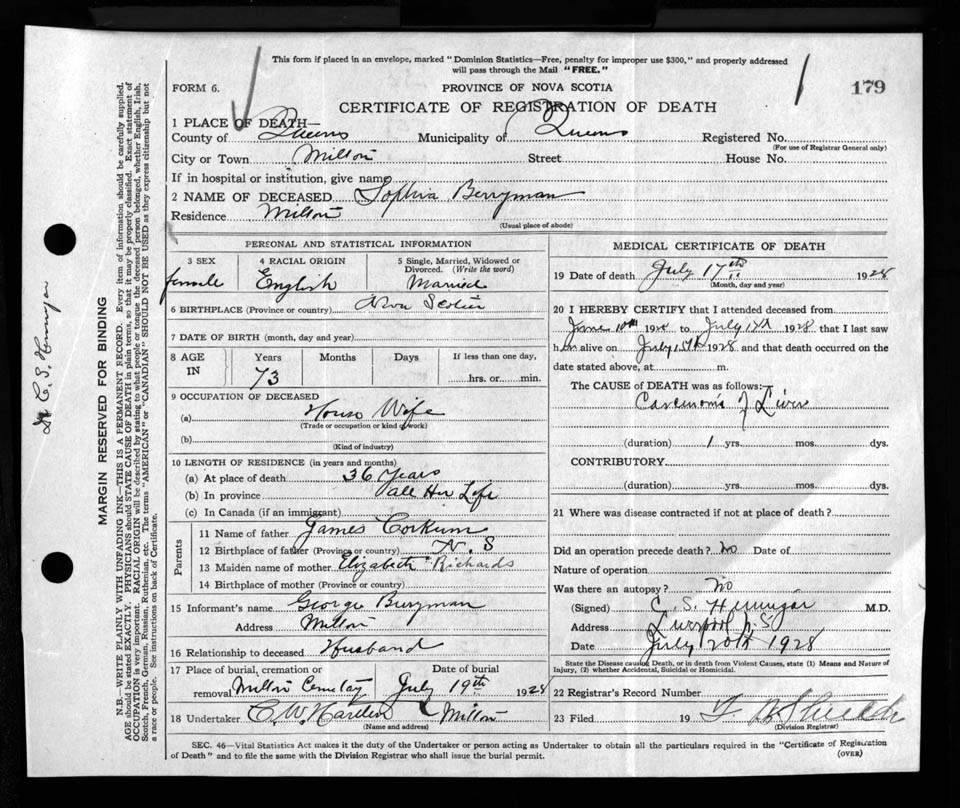 This form if placed in an envelope, marked "Dominion Statistics—Free, penalty for improper use $300," and properly addressed
will pass through the Mail "FREE."
FORM 6.
PROVINCE OF NOVA SCOTIA
179
CERTIFICATE OF REGISTRATION OF DEATH
1 PLACE OF DEATH—
County of Queens Municipality of Queens Registered No.
(For use of Registrar General only)
City or Town Milton Street House No.
If in hospital or institution, give name
2 NAME OF DECEASED Sophia Berryman
Residence Milton
(Usual place of abode)
PERSONAL AND STATISTICAL INFORMATION
3 SEX 4 RACIAL ORIGIN 5 Single, Married, Widowed or
Divorced. (Write the word)
female English Married
6 BIRTHPLACE (Province or country) Nova Scotia
7 DATE OF BIRTH (month, day and year)
8 AGE Years Months Days If less than one day,
IN 73 hrs. or min.
9 OCCUPATION OF DECEASED
(a) House Wife
(Trade or occupation or kind of work)
(b)
(Kind of industry)
10 LENGTH OF RESIDENCE (in years and months)
(a) At place of death 36 Years
(b) In province all Her Life
(c) In Canada (if an immigrant)
Parents
11 Name of father James Corkum
12 Birthplace of father (Province or country) N. S
13 Maiden name of mother Elizabeth Richards
14 Birthplace of mother (Province or Country)
15 Informant's name George Berryman
Address Milton
16 Relationship to deceased Husband
17 Place of burial, cremation or Date of burial
removal Milton Cemetary July 19th 1928
18 Undertaker C. W. Milton
(Name and address)
MEDICAL CERTIFICATE OF DEATH
19 Date of death July 17th 1928
(Month, day and year)
20 I HEREBY CERTIFY that I attended deceased from
June 10th 192 to July 1928 that I last saw
h alive on July 1928 and that death occurred on
date stated above, at m.
The CAUSE of DEATH was as follows:
Carcinoma of Liver
(duration) 1 yrs. mos. dys.
CONTRIBUTORY
(duration) yrs. mos. dys.
21 Where was disease contracted if not at place of death?
Did an operation precede death? No Date of
Nature of operation
Was there an autopsy? No
(Signed) C. S. Hennigar M.D.
Address Liverpool N.S
Date July 20th 1928
State the Disease causing Death, or in death from Violent Causes, state (1) Means and Nature of
Injury, (?) whether Accidental, Suicidal or Homicidal.
22 Registrar's Record Number
23 Filed 19
(Division Registrar)
SEC. 46—Vital Statistics Act makes it the duty of the Undertaker or person acting as Undertaker to obtain all the particulars required in the "Certificate of Registration
of Death" and to file the same with the Division Registrar who shall issue the burial permit.
(OVER)
MARGIN RESERVED FOR BINDING
N.B.—WRITE PLAINLY WITH UNFADING INK—THIS IS A PERMANENT RECORD. Every item of information should be carefully supplied.
AGE should be stated EXACTLY. PHYSICIANS should STATE CAUSE OF DEATH in plain terms, so that it may be properly classified. Exact statement of
OCCUPATION is very important. RACIAL ORIGIN will be described by stating to what people or tongue the deceased person belonged, whether English, Irish,
Scotch, French, German, Russian, Ruthenian, etc. The terms "AMERICAN" or "CANADIAN" SHOULD NOT BE USED as they express citizenship but not
a race or people. See instructions on back of Certificate.
Dr C. S. Hennigar